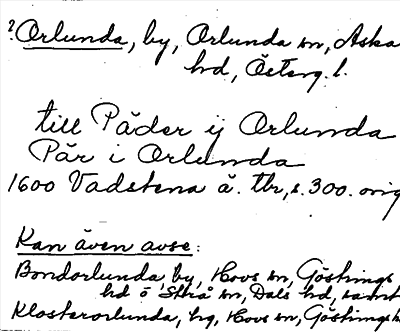 ? Orlunda, by, Orlunda sn, Aska
hd, Österg. l.
till Päder ij Orlunda
Pär i Orlunda
1600 Vadstena ä. tbr, s. 300. orig
Kan även avse:
Bondorlunda, by, Hovs sn, Göstrings
hd o Strå sn, Dals hd, samt
Klosterorlunda, by, Hovs sn, Göstrings h